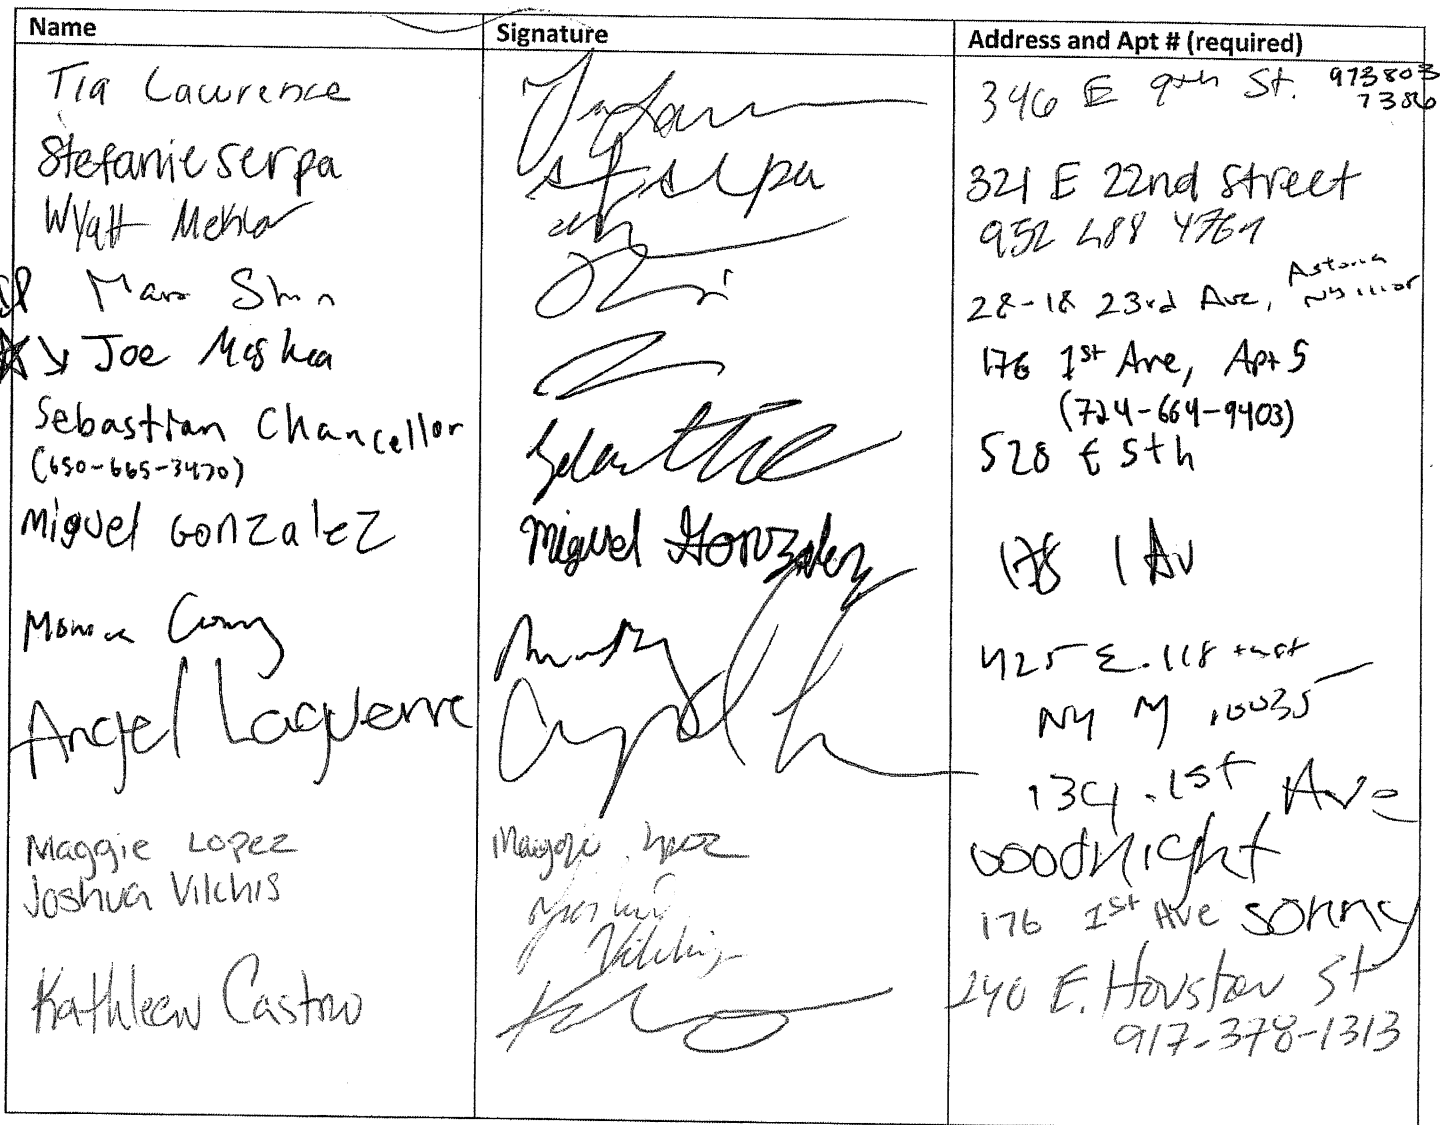 Name Signature Address and Apt # (required)
Tia Lawrence 346 E 9th St. 973803
7386
Stefanie Serpa 321 E 22nd Street
Wyatt 952 488 4761
Shin 28-18 23rd Ave, Astoria
NY
Joe 176 1st Ave, Apt 5
(724-664-9403)
Sebastian Chancellor 528 E 5th
(650-665-3470)
Miguel Gonzalez Miguel Gonzalez 178 1 Av
425 E. 118
NY NY 10035
Angel Laguerre 134 .1st Ave
Goodnight
Maggie Lopez
Joshua Vilchis Vilchis 176 1st Ave Sonny
Kathleen Castro 240 E. Houston St
917-378-1313